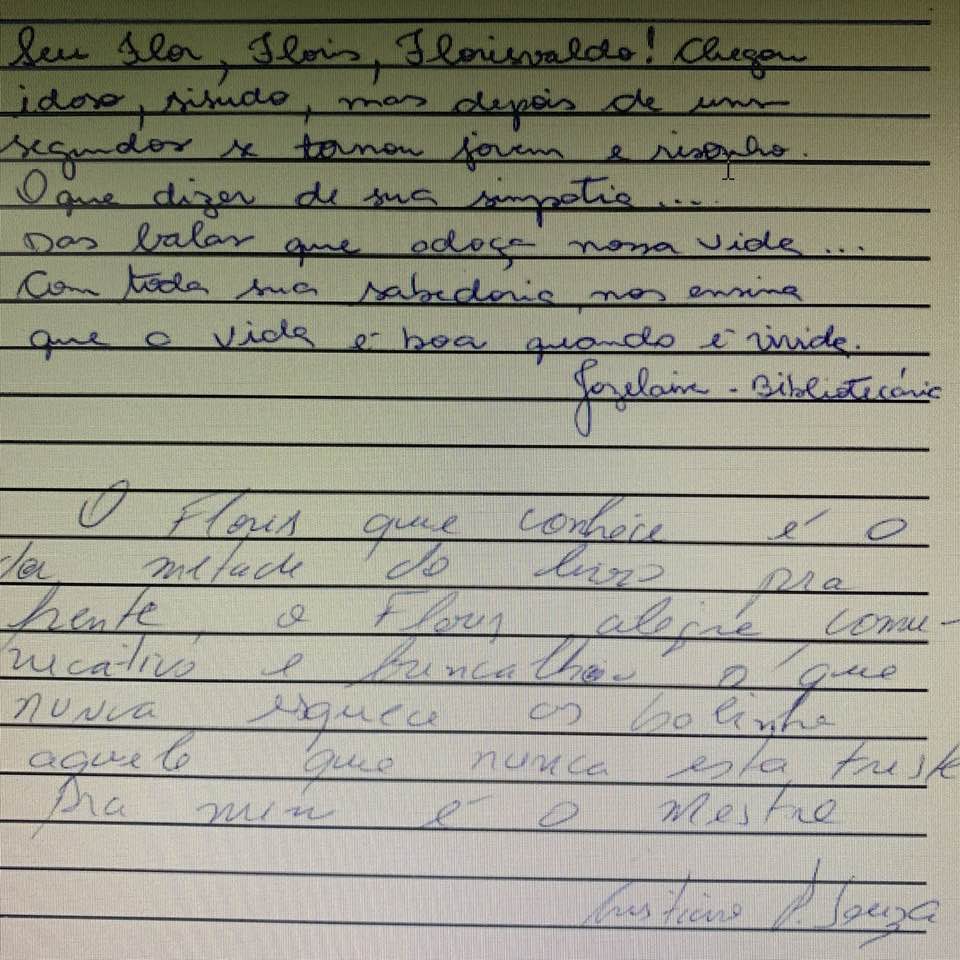 Seu Flor, Floris, Florisvaldo! Chegou
idoso, sisudo, mas depois de uns
segundos se tornou jovem e risonho.
O que dizer de sua simpatia....
Das balas que adoça nossa vida...
Com toda sua sabedoria, nos ensina
que a vida é boa quando é vivida.
Jozelaine - Bibliotecária
O Floris que conhece é o
da metade do livro pra
frente, o Floris alegre comu-
nicativo e brincalhão o que
nunca esquece as bolinha
aquele que nunca esta triste
Pra mim é o Mestre
Cristiano P. Souza